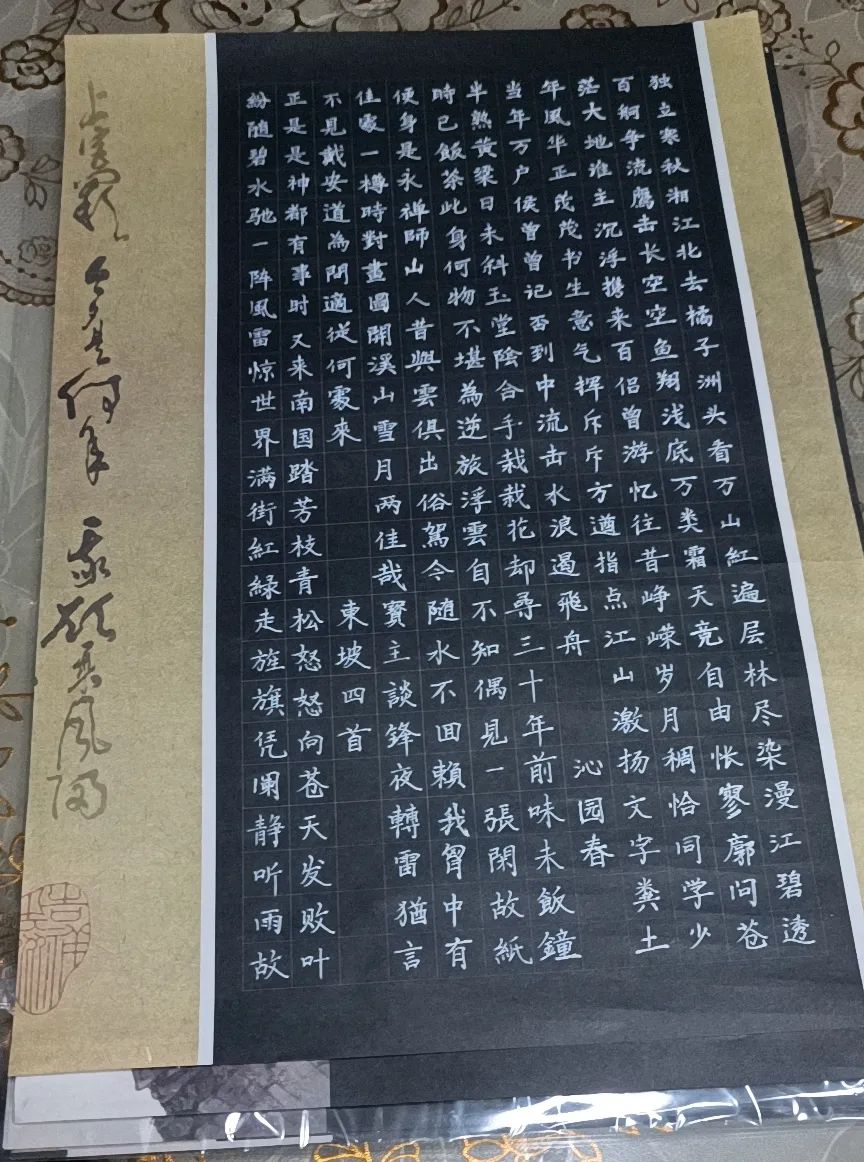 独立寒秋湘江北去橘子洲头看万山紅遍层林尽染漫江碧透
百舸争流鹰击长空空鱼翔浅底万类霜天竞自由怅寥廓问苍
茫大地谁主沉浮携来百侣曾游忆往昔峥嵘岁月稠恰同学少
年風华正茂茂书生意气挥斥斥方遒指点江山激扬文字粪土
当年万户侯曾曾记否到中流击水浪遏飛舟 沁园春
半熟黄粱日未斜玉堂陰合手栽栽花却尋三十年前味未飯鐘
時已飯茶此身何物不堪為逆旅浮雲自不知偶見一張閑故紙
便身是永禅師山人昔與雲俱出俗駕今随水不回賴我胷中有
佳處一樽時對畫圖開溪山雪月两佳哉賓主談鋒夜轉雷猶言
不見戴安道為問適從何處來 東坡四首
正是是神都有事时又来南国踏芳枝青松怒怒向苍天发败叶
紛随碧水驰一阵風雷惊世界满街紅緑走旌旗凭阑静听雨故
上宫阙 今夕是何年 我欲乘风归